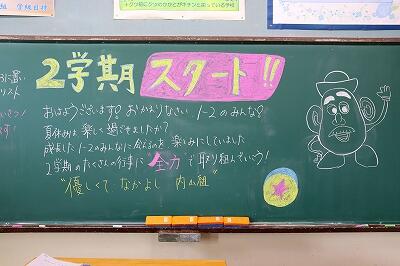 組 学級目標
2学期 スタート!!
おはようございます! おかえりなさい 1-2のみんな!
夏休みは楽しく過ごせましたか?
成長した1-2のみんなに会えるのを、楽しみにしていました
2学期のたくさんの行事に"全力"で取り組んでいこう!
"優しくて なかよし 内山組"
リスト